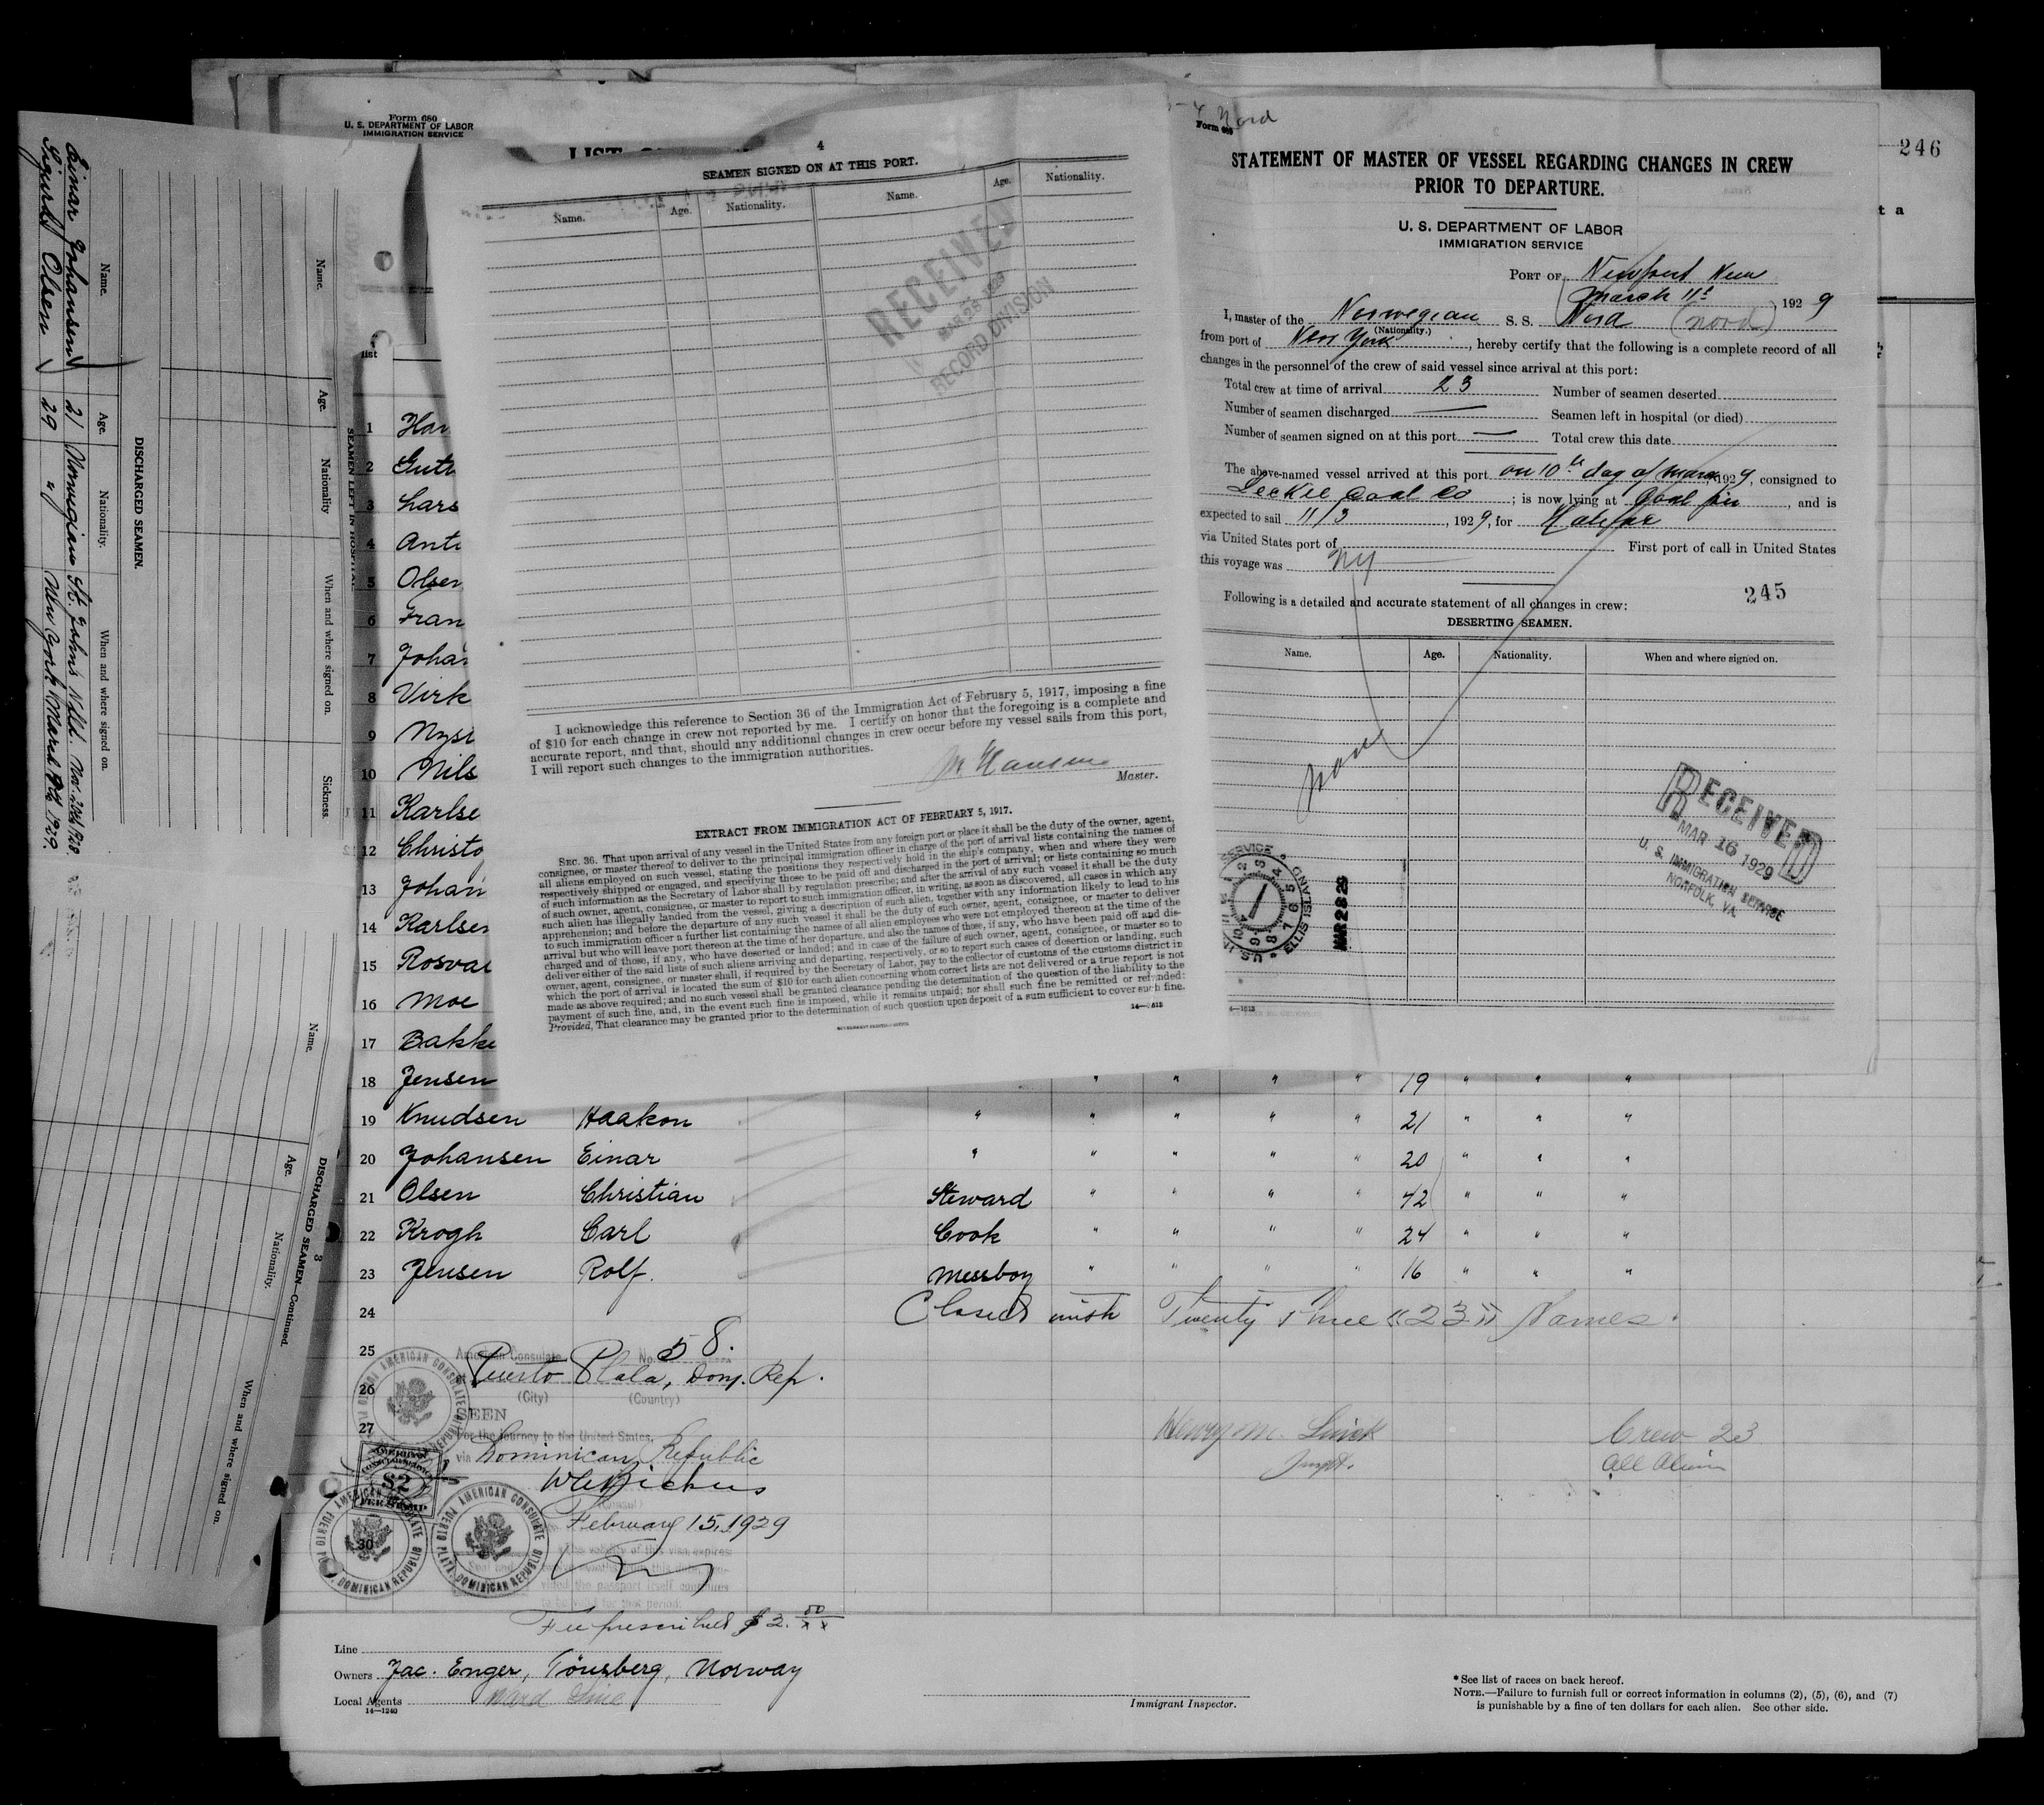 Form 680
U. S. DEPARTMENT OF LABOR
IMMIGRATION SERVICE
list
1 Han
2 Gutt
3 Lars
4 Ant
5 Olsen
6 Fran
7 Johan
8 Virk
9 Nys
10 Nils
11 Karlse
12 Christo
13 Johan
14 Karlsen
15 Rosval
16 Moe
17 Bakke
18 Jensen " " " " 19 " " "
19 Knudsen Haakon " " " " " 21 " " "
20 Johansen Einar " " " " " 20 " " "
21 Olsen Christian Steward " " " " 42 " " "
22 Krogh Carl Cook " " " " 24 " " "
23 Jensen Rolf. Messboy " " " " 16 " " "
24 Closed with Twenty three "23" Names.
25
American Consulate No. 58.
26 Puerto Plata, Dom. Rep.
(City) (Country)
SEEN
27
For the journey to the United States,
via Dominican Republic
(Consul)
February 15, 1929
The validity of this visa expires
30
Fee prescribed $2.00
AMERICAN CONSULATE
PUERTO PLATA, DOMINICAN REPUBLIC
$2
FEE STAMP
Henry M.
Inspt.
Crew 23
All Aliens
Line
Owners Jac. Enger, Tönsberg, Norway
Local Agents Ward Line
14—1240
Immigrant Inspector.
*See list of races on back hereof.
NOTE.—Failure to furnish full or correct information in columns (2), (5), (6), and (7)
is punishable by a fine of ten dollars for each alien. See other side.
4
SEAMEN SIGNED ON AT THIS PORT.
Name. Age. Nationality. Name. Age. Nationality.
RECEIVED
MAR 28 1929
RECORD DIVISION
I acknowledge this reference to Section 36 of the Immigration Act of February 5, 1917, imposing a fine
of $10 for each change in crew not reported by me. I certify on honor that the foregoing is a complete and
accurate report, and that, should any additional changes in crew occur before my vessel sails from this port,
I will report such changes to the immigration authorities.
M Hansen
Master.
EXTRACT FROM IMMIGRATION ACT OF FEBRUARY 5, 1917.
SEC. 36. That upon arrival of any vessel in the United States from any foreign port or place it shall be the duty of the owner, agent,
consignee, or master thereof to deliver to the principal immigration officer in charge of the port of arrival lists containing the names of
all aliens employed on such vessel, stating the positions they respectively hold in the ship's company, when and where they were
respectively shipped or engaged, and specifying those to be paid off and discharged in the port of arrival; or lists containing so much
of such information as the Secretary of Labor shall by regulation prescribe; and after the arrival of any such vessel it shall be the duty
of such owner, agent, consignee, or master to report to such immigration officer, in writing, as soon as discovered, all cases in which any
such alien has illegally landed from the vessel, giving a description of such alien, together with any information likely to lead to his
apprehension; and before the departure of any such vessel it shall be the duty of such owner, agent, consignee, or master to deliver
to such immigration officer a further list containing the names of all alien employees who were not employed thereon at the time of the
arrival but who will leave port thereon at the time of her departure, and also the names of those, if any, who have been paid off and dis-
charged and of those, if any, who have deserted or landed; and in case of the failure of such owner, agent, consignee, or master so to
deliver either of the said lists of such aliens arriving and departing, respectively, or so to report such cases of desertion or landing, such
owner, agent, consignee, or master shall, if required by the Secretary of Labor, pay to the collector of customs of the customs district in
which the port of arrival is located the sum of $10 for each alien concerning whom correct lists are not delivered or a true report is not
made as above required; and no such vessel shall be granted clearance pending the determination of the question of the liability to the
payment of such fine, and, in the event such fine is imposed, while it remains unpaid; nor shall such fine be remitted or refunded:
Provided, That clearance may be granted prior to the determination of such question upon deposit of a sum sufficient to cover such fine.
Nord
STATEMENT OF MASTER OF VESSEL REGARDING CHANGES IN CREW
PRIOR TO DEPARTURE.
U. S. DEPARTMENT OF LABOR
IMMIGRATION SERVICE
PORT OF Newport News
March 11th 1929
I, master of the Norwegian S. S. Nord (Nord)
(Nationality.)
from port of New York, hereby certify that the following is a complete record of all
changes in the personnel of the crew of said vessel since arrival at this port:
Total crew at time of arrival 23 Number of seamen deserted
Number of seamen discharged — Seamen left in hospital (or died)
Number of seamen signed on at this port — Total crew this date
The above-named vessel arrived at this port on 10th day of March 1929, consigned to
Leckie Coal Co; is now lying at Coal pier, and is
expected to sail 11/3, 1929, for Halifax
via United States port of First port of call in United States
this voyage was NY
Following is a detailed and accurate statement of all changes in crew:
245
DESERTING SEAMEN.
Name. Age. Nationality. When and where signed on.
None
RECEIVED
MAR 16 1929
U. S. IMMIGRATION SERVICE
NORFOLK, VA.
ELLIS ISLAND
MAR 28 29
246
DISCHARGED SEAMEN.
Name. Age. Nationality. When and where signed on.
Einar Johansen 21 Norwegian St. Johns Nfld. Nov. 20th 1928.
Sigurd Olsen 29 " New York March 1929.
SEAMEN LEFT IN HOSPITAL
Name. Age. Nationality When and where signed on. Sickness.
3
DISCHARGED SEAMEN—Continued.
Name. Age. Nationality. When and where signed on.